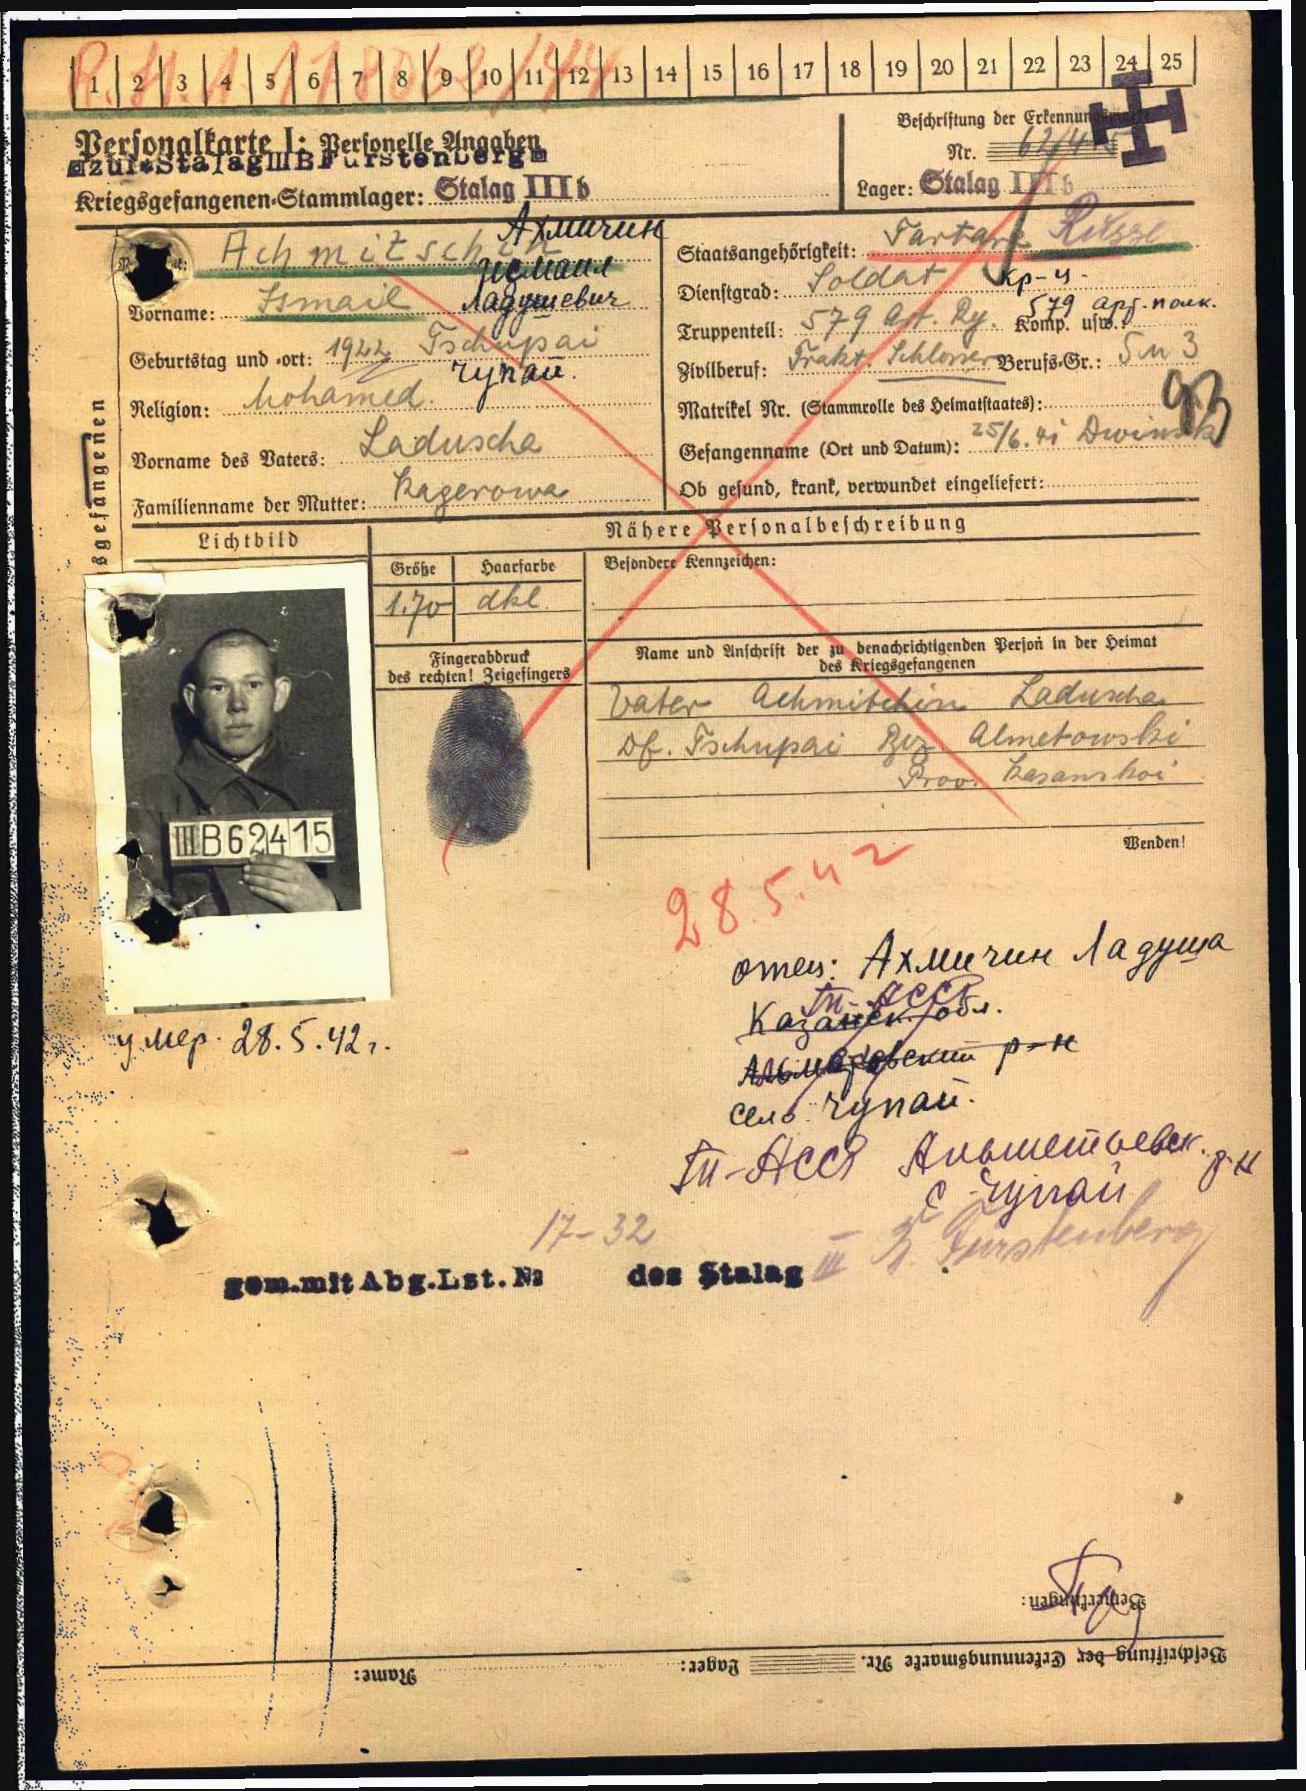 1 2 3 4 5 6 7 8 9 10 11 12 13 14 15 16 17 18 19 20 21 22 23 24 25
Personalkarte I: Personelle Angaben
zur: Stalag III B Fürstenberg
Kriegsgefangenen-Stammlager: Stalag III b
Beschriftung der Erkennungsmarke
Nr. 62415
Lager: Stalag III b
Achmitschin
Ахмичин
Исмаил
Ладушевич
Vorname: Ismail
Geburtstag und -ort: 1922 Tschupai
Чупай.
Religion: Mohamed.
Vorname des Vaters: Laduscha
Familienname der Mutter: Kagerowa
Staatsangehörigkeit: Tartare Russe
Dienstgrad: Soldat Кр-ц-
Truppenteil: 579 Art. Rg. Komp. usw.: 579 арт. полк.
Zivilberuf: Trakt. Schlosser Berufs-Gr.: 5 u 3
Matrikel Nr. (Stammrolle des Heimatstaates):
93
Gefangenname (Ort und Datum): 25/6. 41 Dwinsk
Ob gesund, krank, verwundet eingeliefert:
sgefangenen
Lichtbild
Nähere Personalbeschreibung
Größe Haarfarbe Besondere Kennzeichen:
1.70 dkl.
Fingerabdruck
des rechten! Zeigefingers
Name und Anschrift der zu benachrichtigenden Person in der Heimat
des Kriegsgefangenen
Vater Achmitchin Laduscha
Df. Tschupai Bez. Almetowski
Prov. Kasanskoi
Wenden!
III B 62415
28.5.42
умер. 28.5.42г.
отец: Ахмичин Ладуша
Тт-АССР
Казанск. обл.
Альметовский р-н
село Чупай.
Тт-АССР Альметьевск. р-н
с. Чупай
17-32
gem. mit Abg. Lst. № des Stalag III B. Fürstenberg
Bemerkungen:
Beschriftung der Erkennungsmarke Nr. Lager: Name: